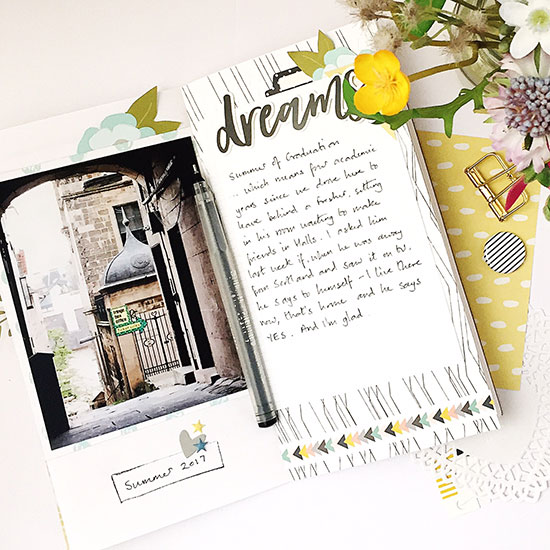 dreams
Summer of Graduation
- which means four academic
years since we drove here to
leave behind a fresher, sitting
in his room waiting to make
friends in Halls. I asked him
last week if, when he was away
from Scotland and saw it on tv,
he says to himself - I live there
now, that's home and he says
YES. And I'm glad
Summer 2017